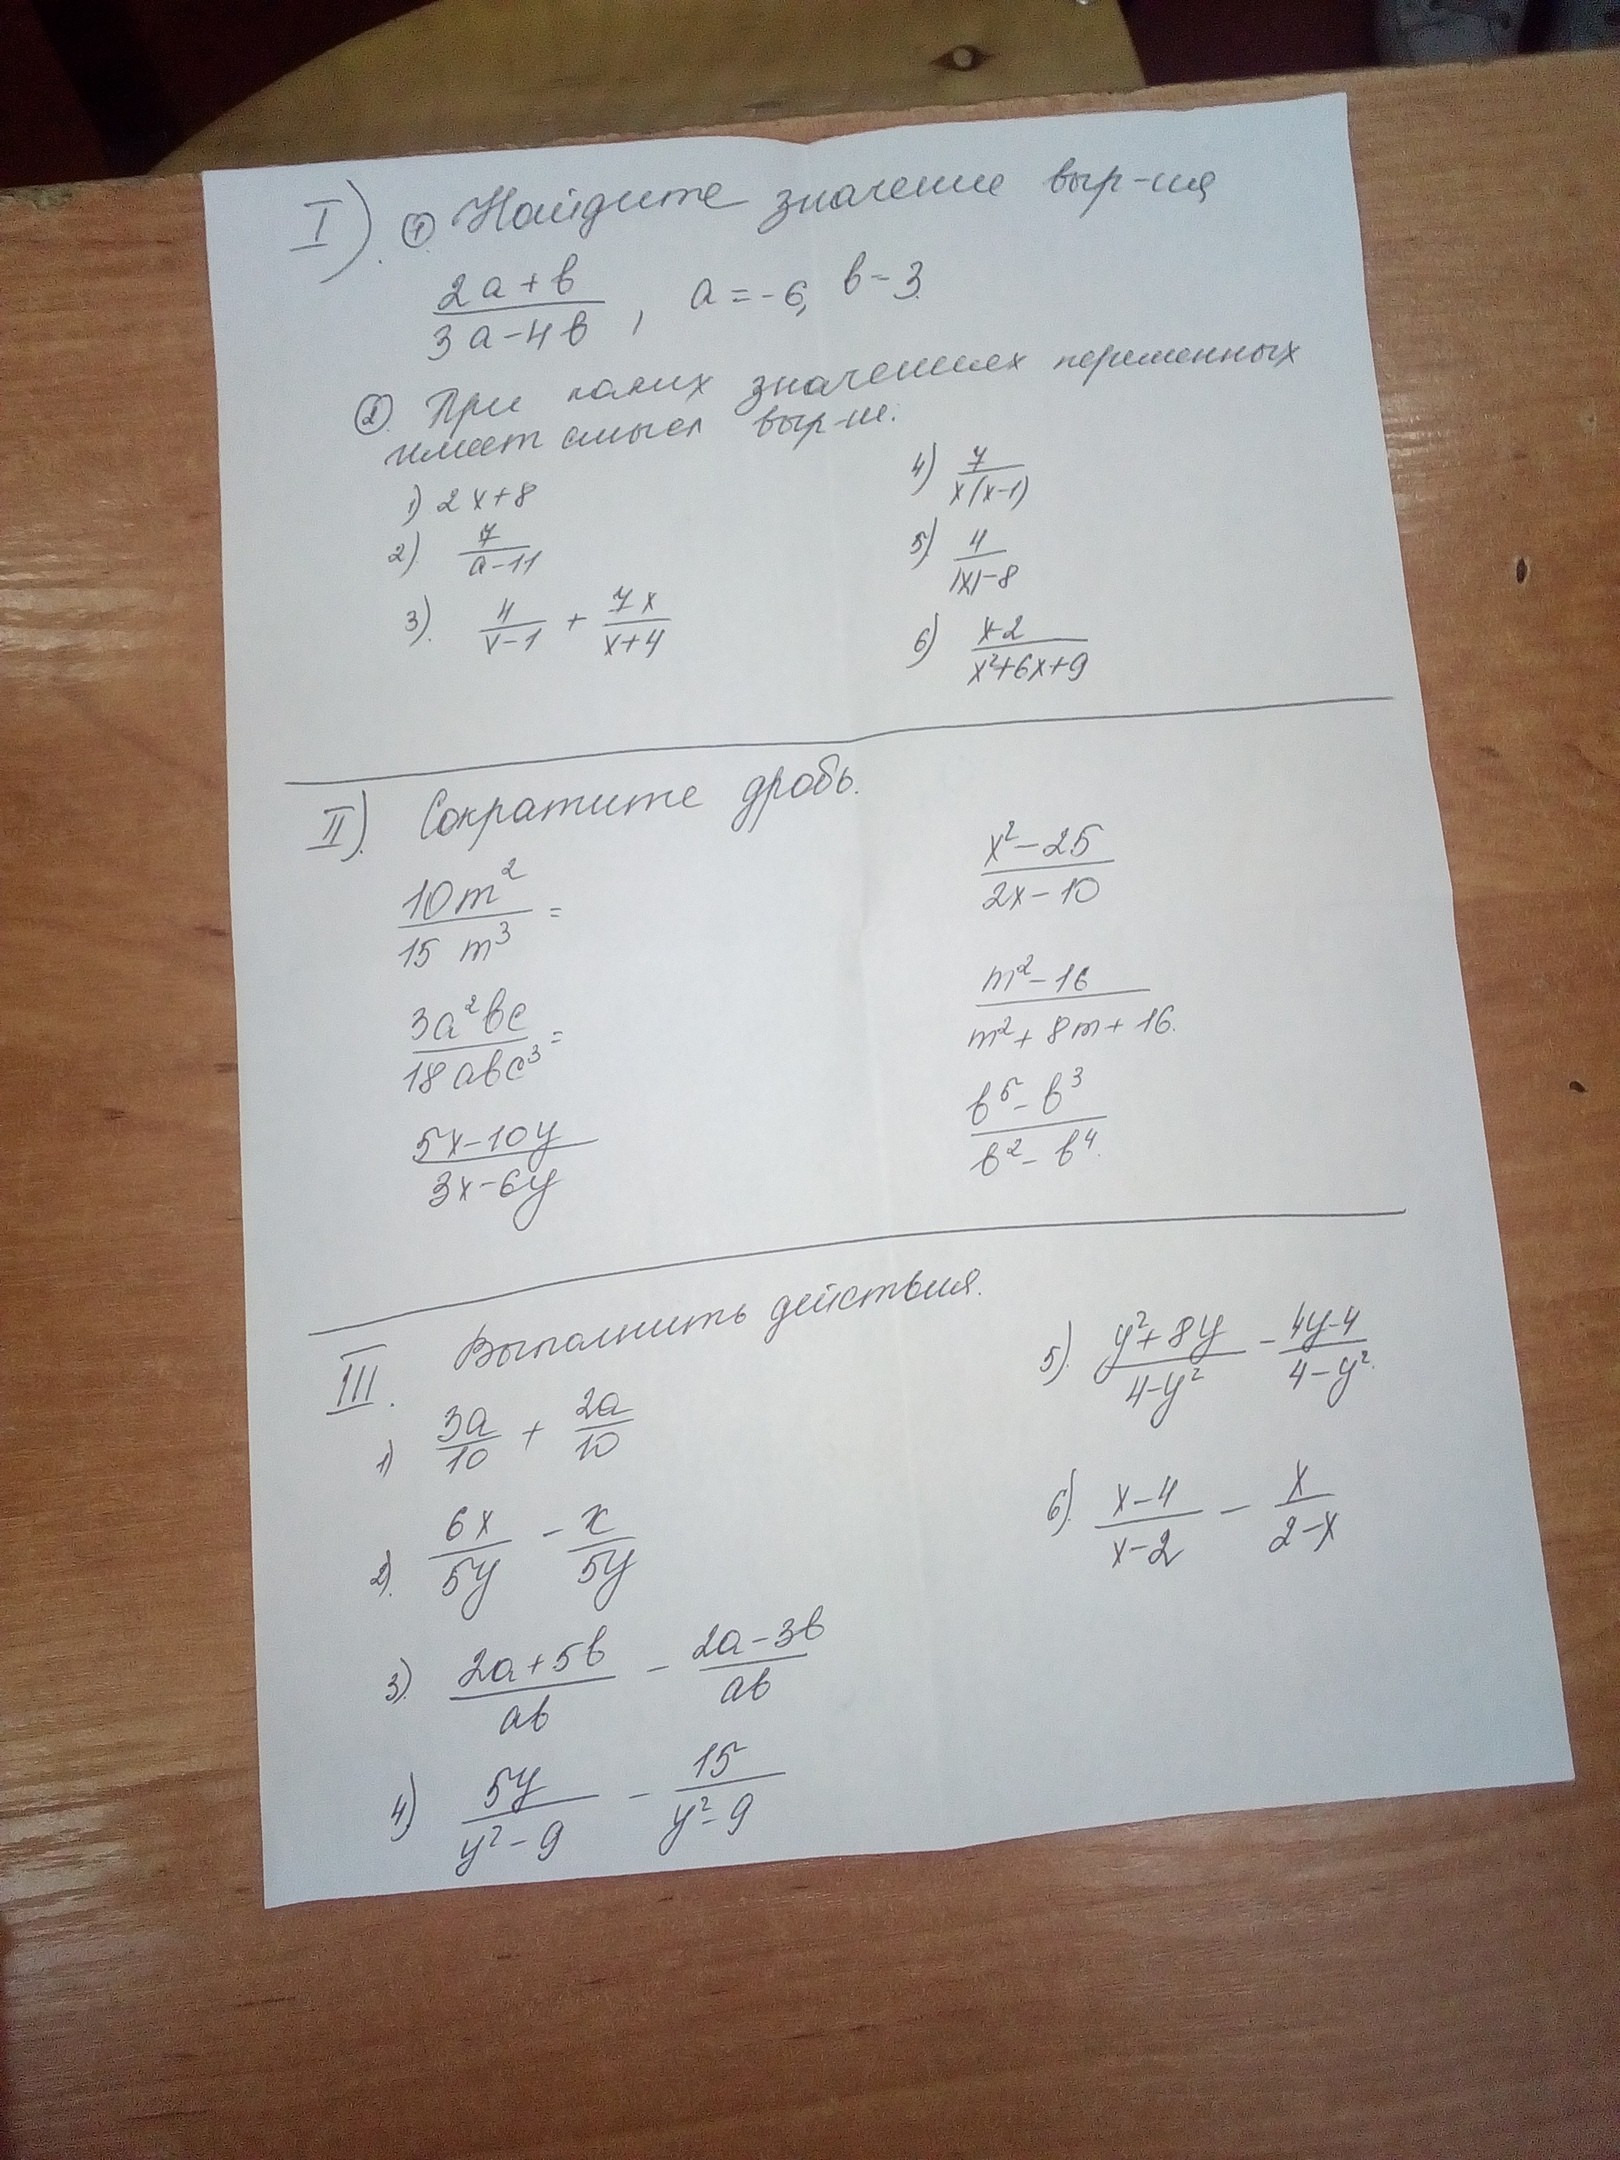 I). ① Найдите значение выр-ия
2a+b / 3a-4b , a=-6, b=3.
② При каких значениях переменных
имеет смысл выр-ие.
1) 2x+8
2) 7/(a-11)
3). 4/(x-1) + 7x/(x+4)
4) 7/(x(x-1))
5) 4/(|x|-8)
6) (x-2)/(x²+6x+9)
II). Сократите дробь.
10m²/15m³ =
3a²bc/18abc³ =
(5x-10y)/(3x-6y)
(x²-25)/(2x-10)
(m²-16)/(m²+8m+16).
(b⁵-b³)/(b²-b⁴).
III. Выполнить действия.
1) 3a/10 + 2a/10
2). 6x/5y - x/5y
3). (2a+5b)/ab - (2a-3b)/ab
4) 5y/(y²-9) - 15/(y²-9)
5). (y²+8y)/(4-y²) - (4y-4)/(4-y²).
6). (x-4)/(x-2) - x/(2-x)